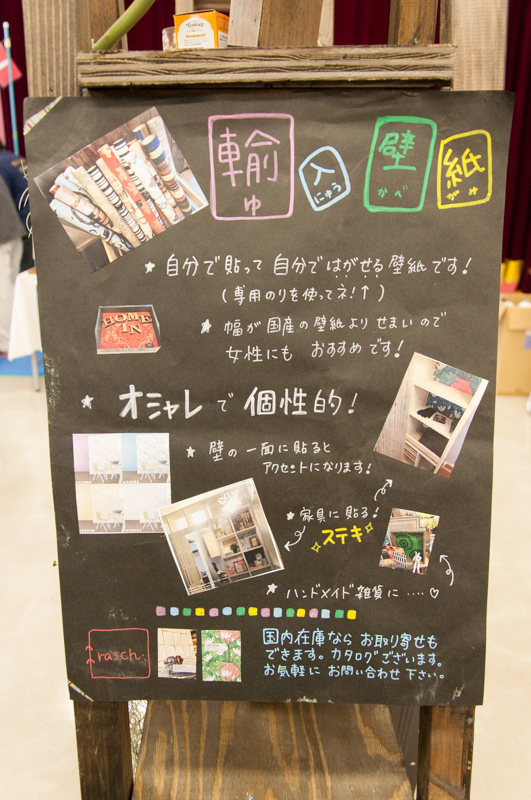 輸入壁紙
ゆ にゅう かべ がみ
★自分で貼って自分ではがせる壁紙です!
(専用のりを使ってネ!↑)
HOME IN
★幅が国産の壁紙よりせまいので
女性にもおすすめです!
★オシャレで個性的!
★壁の一面に貼ると
アクセントになります!
★家具に貼る!
ステキ
★ハンドメイド雑貨に‥‥♡
rasch.
国内在庫ならお取り寄せも
できます。カタログございます。
お気軽にお問い合わせ下さい。